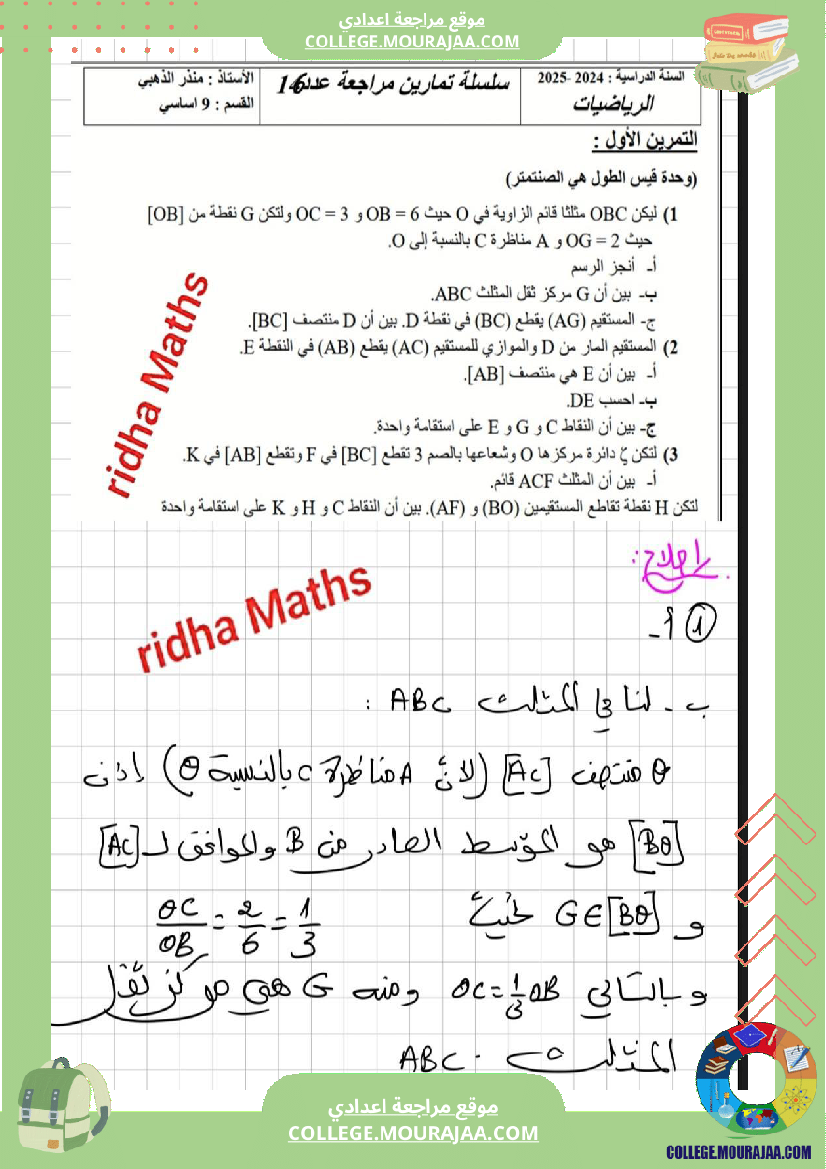 موقع مراجعة اعدادي
COLLEGE.MOURAJAA.COM
السنة الدراسية : 2024 -2025
الرياضيات
سلسلة تمارين مراجعة عدد16
الأستاذ : منذر الذهبي
القسم : 9 اساسي
التمرين الأول :
(وحدة قيس الطول هي الصنتمتر)
1) ليكن OBC مثلثا قائم الزاوية في O حيث OB = 6 و OC = 3 ولتكن G نقطة من [OB]
حيث OG = 2 و A مناظرة C بالنسبة إلى O.
أ- أنجز الرسم
ب- بين أن G مركز ثقل المثلث ABC.
ج- المستقيم (AG) يقطع (BC) في نقطة D. بين أن D منتصف [BC].
2) المستقيم المار من D والموازي للمستقيم (AC) يقطع (AB) في النقطة E.
أ- بين أن E هي منتصف [AB].
ب- احسب DE.
ج- بين أن النقاط C و G و E على استقامة واحدة.
3) لتكن ζ دائرة مركزها O وشعاعها بالصم 3 تقطع [BC] في F وتقطع [AB] في K.
أ- بين أن المثلث ACF قائم.
لتكن H نقطة تقاطع المستقيمين (BO) و (AF). بين أن النقاط C و H و K على استقامة واحدة
ridha Maths
إصلاح:
ridha Maths
1 أ-
ب - لنا في المثلث ABC :
O منتصف [AC] (لأنّ A مناظرة C بالنسبة O) إذن
[BO] هو الموسط الصادر من B والموافق لـ [AC]
و G∈[BO] حيث OC/OB = 2/6 = 1/3
و بالتالي OC = 1/3 OB ومنه G هي مركز ثقل
المثلث ABC.
موقع مراجعة اعدادي
COLLEGE.MOURAJAA.COM
COLLEGE.MOURAJAA.COM